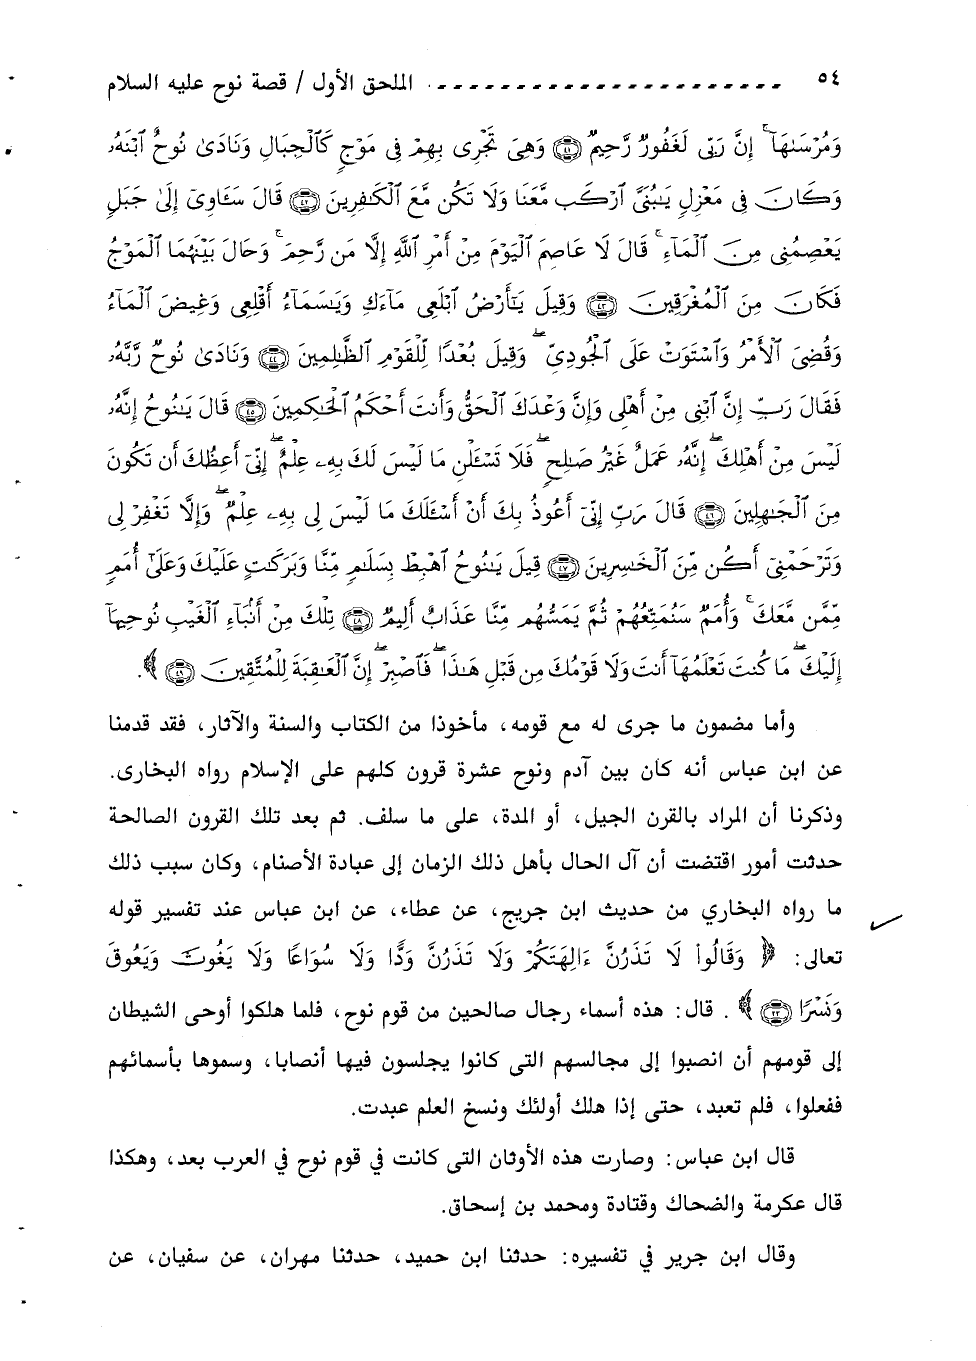 ٥٤ ـ ـ ـ ـ ـ ـ ـ ـ ـ ـ ـ ـ ـ ـ ـ ـ ـ ـ ـ ـ ـ ـ الملحق الأول / قصة نوح عليه السلام
وَمُرْسَىٰهَآ ۚ إِنَّ رَبِّى لَغَفُورٌ رَّحِيمٌ ﴿٤١﴾ وَهِىَ تَجْرِى بِهِمْ فِى مَوْجٍ كَٱلْجِبَالِ وَنَادَىٰ نُوحٌ ٱبْنَهُۥ
وَكَانَ فِى مَعْزِلٍ يَـٰبُنَىَّ ٱرْكَب مَّعَنَا وَلَا تَكُن مَّعَ ٱلْكَـٰفِرِينَ ﴿٤٢﴾ قَالَ سَـَٔاوِىٓ إِلَىٰ جَبَلٍ
يَعْصِمُنِى مِنَ ٱلْمَآءِ ۚ قَالَ لَا عَاصِمَ ٱلْيَوْمَ مِنْ أَمْرِ ٱللَّهِ إِلَّا مَن رَّحِمَ ۚ وَحَالَ بَيْنَهُمَا ٱلْمَوْجُ
فَكَانَ مِنَ ٱلْمُغْرَقِينَ ﴿٤٣﴾ وَقِيلَ يَـٰٓأَرْضُ ٱبْلَعِى مَآءَكِ وَيَـٰسَمَآءُ أَقْلِعِى وَغِيضَ ٱلْمَآءُ
وَقُضِىَ ٱلْأَمْرُ وَٱسْتَوَتْ عَلَى ٱلْجُودِىِّ ۖ وَقِيلَ بُعْدًا لِّلْقَوْمِ ٱلظَّـٰلِمِينَ ﴿٤٤﴾ وَنَادَىٰ نُوحٌ رَّبَّهُۥ
فَقَالَ رَبِّ إِنَّ ٱبْنِى مِنْ أَهْلِى وَإِنَّ وَعْدَكَ ٱلْحَقُّ وَأَنتَ أَحْكَمُ ٱلْحَـٰكِمِينَ ﴿٤٥﴾ قَالَ يَـٰنُوحُ إِنَّهُۥ
لَيْسَ مِنْ أَهْلِكَ ۖ إِنَّهُۥ عَمَلٌ غَيْرُ صَـٰلِحٍ ۖ فَلَا تَسْـَٔلْنِ مَا لَيْسَ لَكَ بِهِۦ عِلْمٌ ۖ إِنِّىٓ أَعِظُكَ أَن تَكُونَ
مِنَ ٱلْجَـٰهِلِينَ ﴿٤٦﴾ قَالَ رَبِّ إِنِّىٓ أَعُوذُ بِكَ أَنْ أَسْـَٔلَكَ مَا لَيْسَ لِى بِهِۦ عِلْمٌ ۖ وَإِلَّا تَغْفِرْ لِى
وَتَرْحَمْنِىٓ أَكُن مِّنَ ٱلْخَـٰسِرِينَ ﴿٤٧﴾ قِيلَ يَـٰنُوحُ ٱهْبِطْ بِسَلَـٰمٍ مِّنَّا وَبَرَكَـٰتٍ عَلَيْكَ وَعَلَىٰٓ أُمَمٍ
مِّمَّن مَّعَكَ ۚ وَأُمَمٌ سَنُمَتِّعُهُمْ ثُمَّ يَمَسُّهُم مِّنَّا عَذَابٌ أَلِيمٌ ﴿٤٨﴾ تِلْكَ مِنْ أَنۢبَآءِ ٱلْغَيْبِ نُوحِيهَآ
إِلَيْكَ ۖ مَا كُنتَ تَعْلَمُهَآ أَنتَ وَلَا قَوْمُكَ مِن قَبْلِ هَـٰذَا ۖ فَٱصْبِرْ ۖ إِنَّ ٱلْعَـٰقِبَةَ لِلْمُتَّقِينَ ﴿٤٩﴾ ﴾.
وأما مضمون ما جرى له مع قومه، مأخوذا من الكتاب والسنة والآثار، فقد قدمنا
عن ابن عباس أنه كان بين آدم ونوح عشرة قرون كلهم على الإسلام رواه البخارى.
وذكرنا أن المراد بالقرن الجيل، أو المدة، على ما سلف. ثم بعد تلك القرون الصالحة
حدثت أمور اقتضت أن آل الحال بأهل ذلك الزمان إلى عبادة الأصنام، وكان سبب ذلك
ما رواه البخاري من حديث ابن جريج، عن عطاء، عن ابن عباس عند تفسير قوله
تعالى: ﴿ وَقَالُوا۟ لَا تَذَرُنَّ ءَالِهَتَكُمْ وَلَا تَذَرُنَّ وَدًّا وَلَا سُوَاعًا وَلَا يَغُوثَ وَيَعُوقَ
وَنَسْرًا ﴿٢٣﴾ ﴾ . قال: هذه أسماء رجال صالحين من قوم نوح، فلما هلكوا أوحى الشيطان
إلى قومهم أن انصبوا إلى مجالسهم التى كانوا يجلسون فيها أنصابا، وسموها بأسمائهم
ففعلوا، فلم تعبد، حتى إذا هلك أولئك ونسخ العلم عبدت.
قال ابن عباس: وصارت هذه الأوثان التى كانت في قوم نوح في العرب بعد، وهكذا
قال عكرمة والضحاك وقتادة ومحمد بن إسحاق.
وقال ابن جرير في تفسيره: حدثنا ابن حميد، حدثنا مهران، عن سفيان، عن